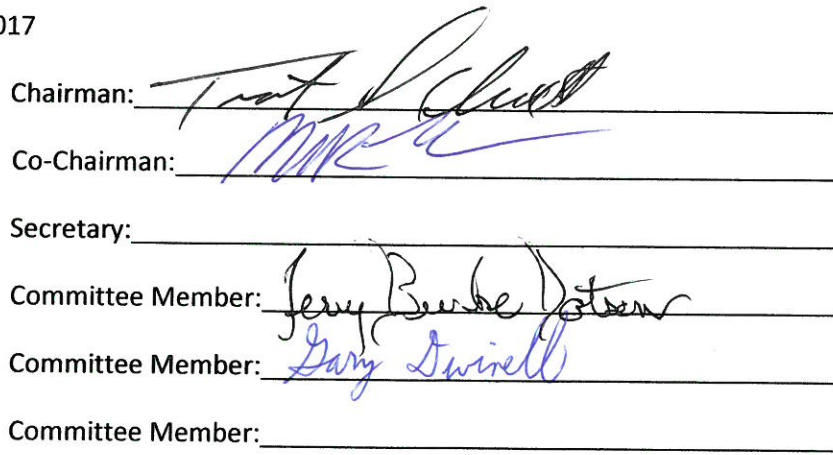 017
Chairman:
Co-Chairman:
Secretary:
Committee Member: Jerry Burke Dotson
Committee Member: Gary Dwinell
Committee Member: